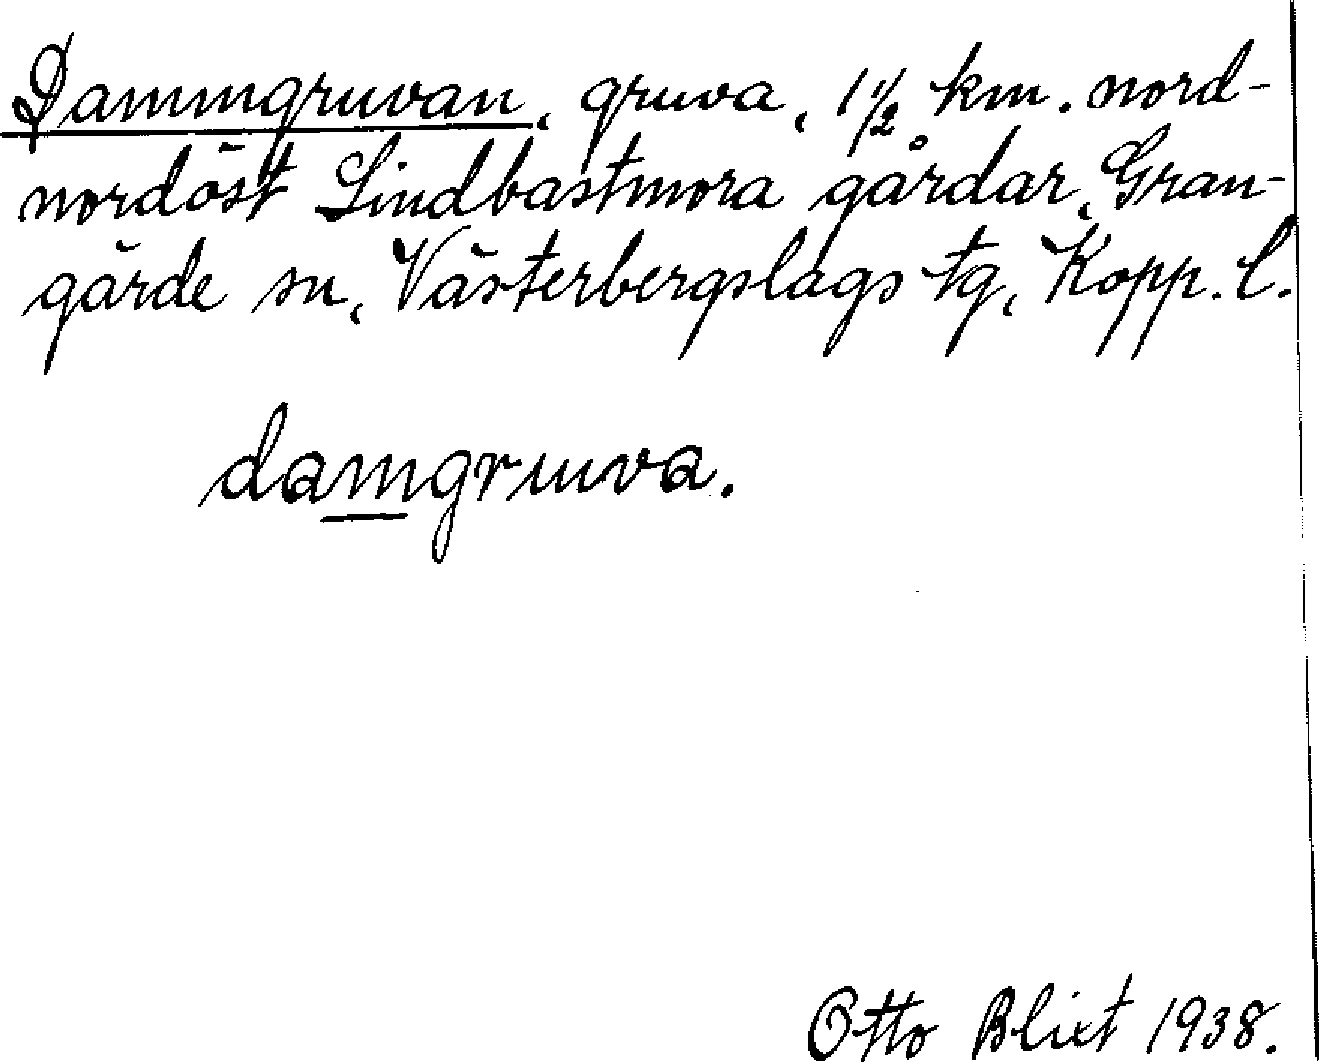 Dammgruvan, gruva, 1 1/2 km. nord-
nordöst Lindbastmora gårdar, Gran-
gärde sn, Västerbergslags tg, Kopp. l.
damgruva.
Otto Blixt 1938.